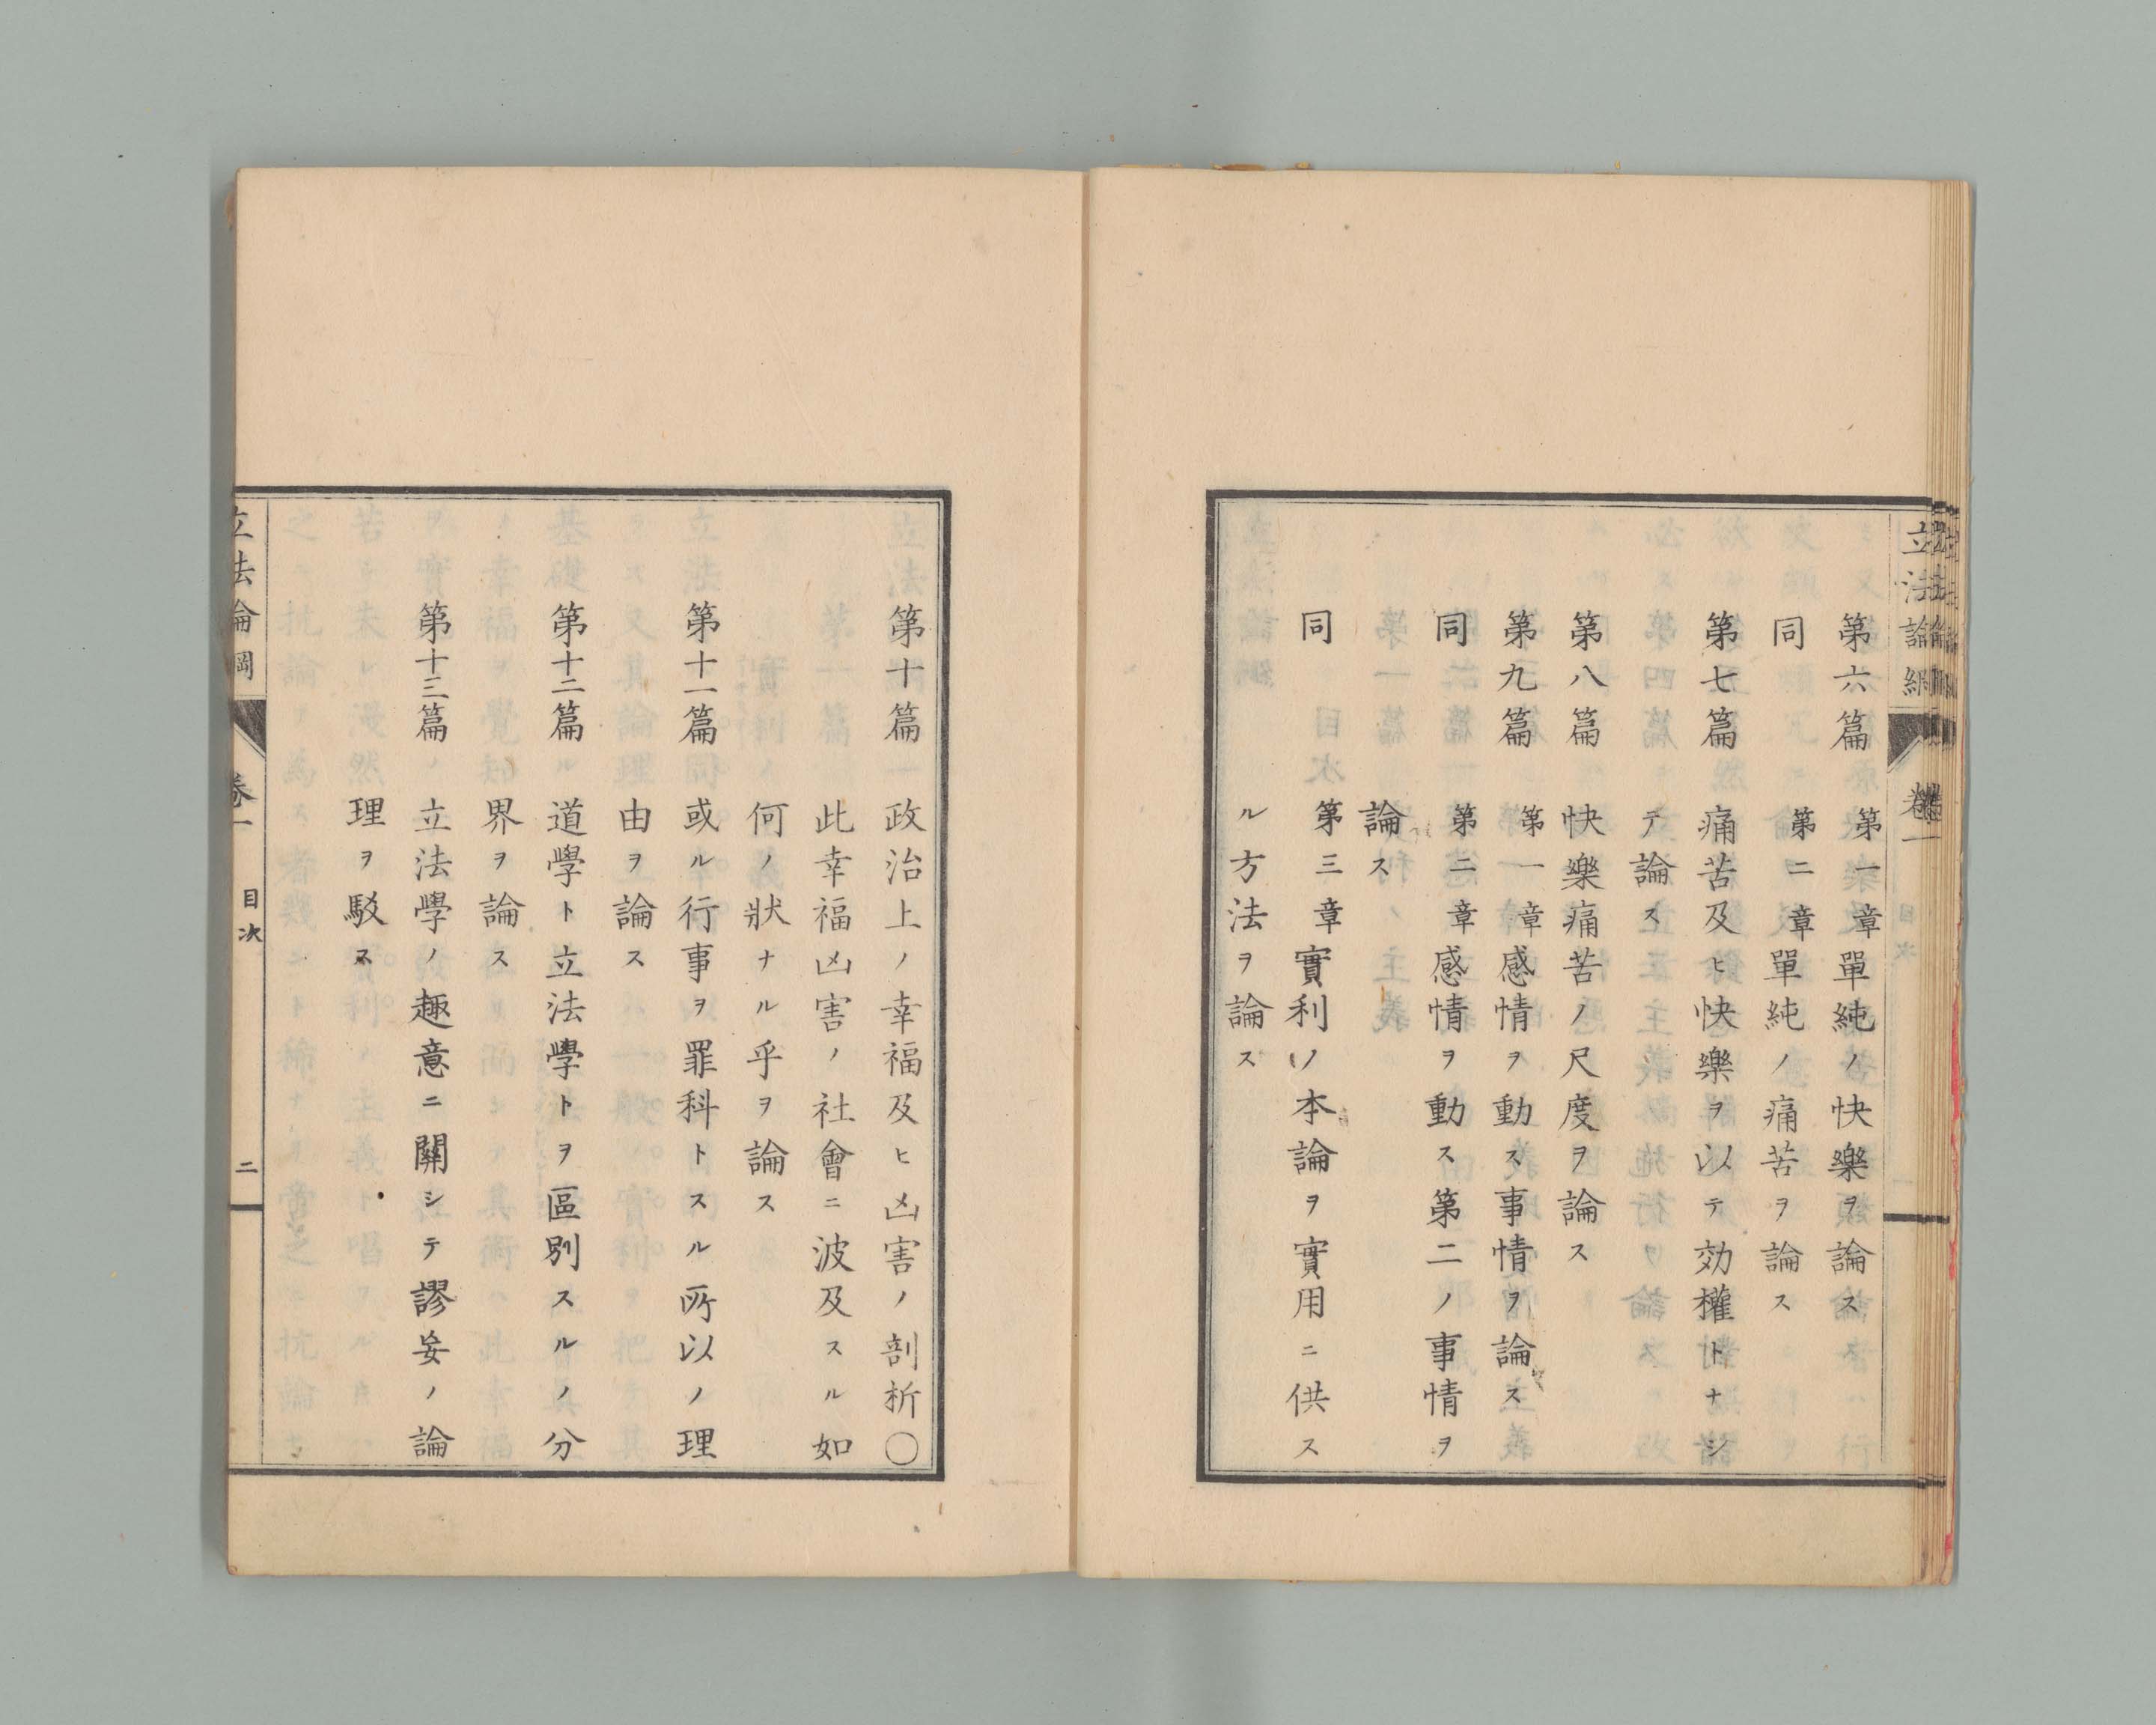 立法論綱 卷一
第六篇 第一章 單純ノ快樂ヲ論ス
同 第二章 單純ノ痛苦ヲ論ス
第七篇 痛苦及ヒ快樂ヲ以テ効權トナシ
テ論ス
第八篇 快樂痛苦ノ尺度ヲ論ス
第九篇 第一章 感情ヲ動ス事情ヲ論ス
同 第二章 感情ヲ動ス第二ノ事情ヲ
論ス
同 第三章 實利ノ本論ヲ實用ニ供ス
ル方法ヲ論ス
第十篇 政治上ノ幸福及ヒ凶害ノ剖析〇
此幸福凶害ノ社會ニ波及スル如
何ノ狀ナル乎ヲ論ス
第十一篇 或ル行事ヲ罪科トスル所以ノ理
由ヲ論ス
第十二篇 道學ト立法學トヲ區別スルノ分
界ヲ論ス
第十三篇 立法學ノ趣意ニ關シテ謬妄ノ論
理ヲ駁ス
立法論綱 卷一 目次 二